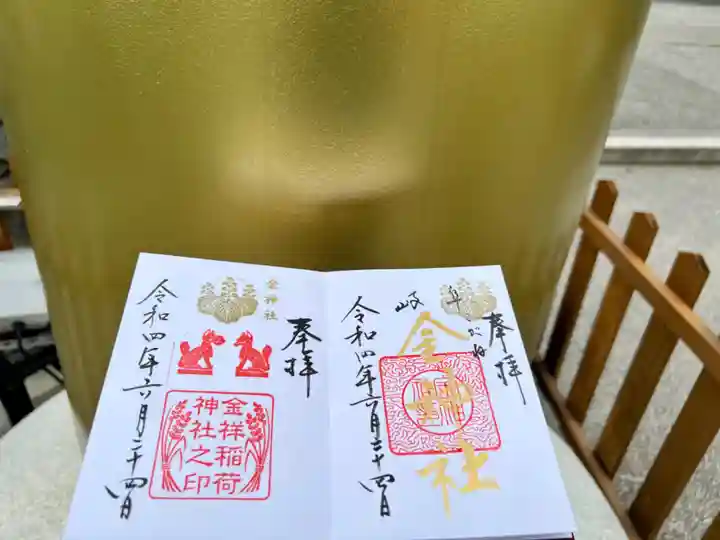 奉拝
金神社
金祥稲荷
神社之印
令和四年六月二十四日
奉拝
岐阜
こがね
金神社
令和四年六月二十四日